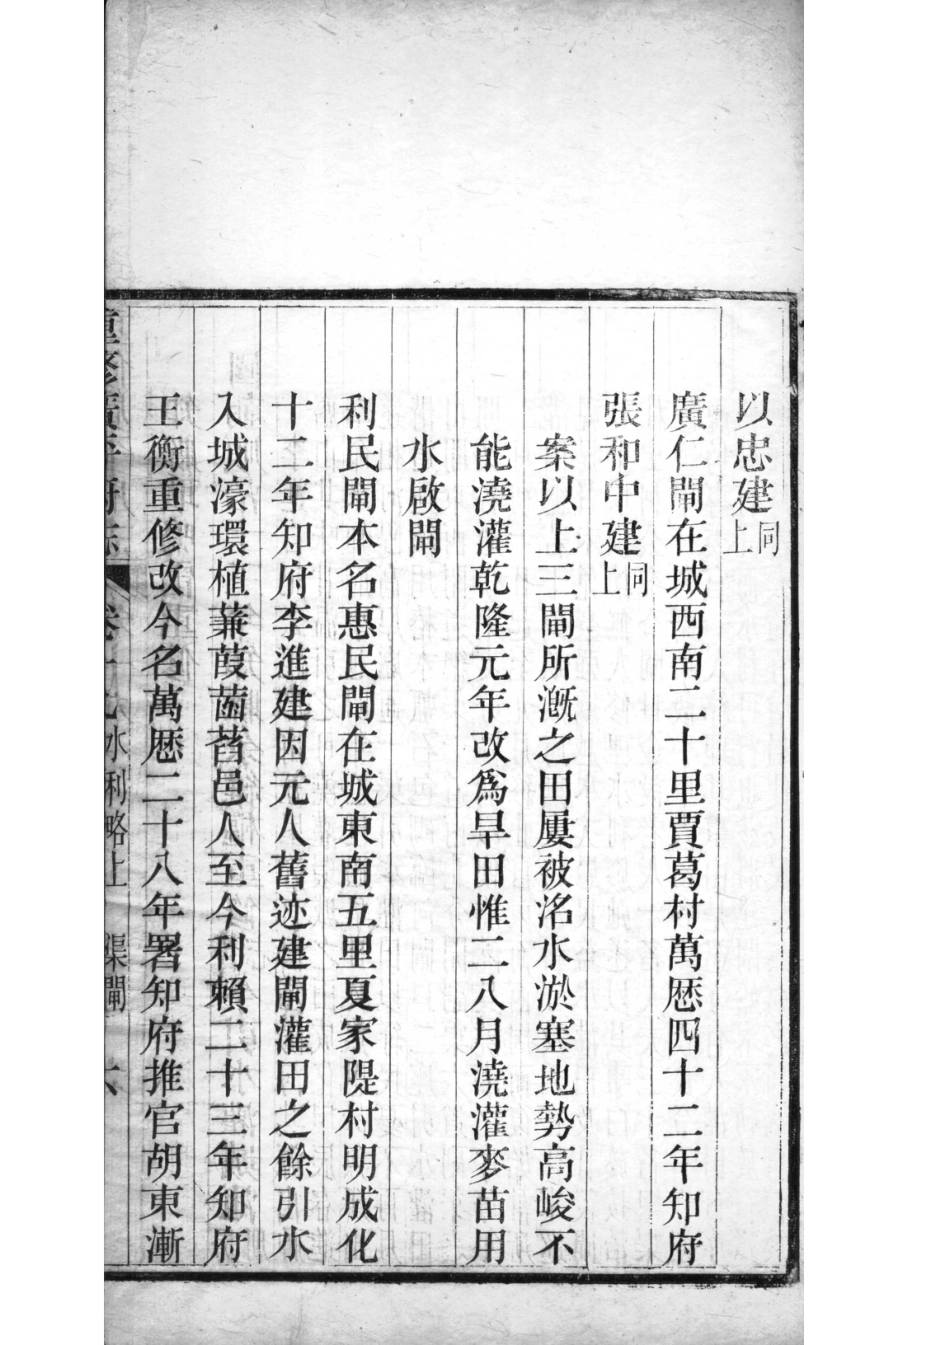 以忠建同上
廣仁閘在城西南二十里賈葛村萬歴四十二年知府
張和中建同上
案以上三閘所漑之田屢被洺水淤塞地勢高峻不
能澆灌乾隆元年改爲旱田惟二八月澆灌麥苗用
水啟閘
利民閘本名惠民閘在城東南五里夏家隄村明成化
十二年知府李進建因元人舊迹建閘灌田之餘引水
入城濠環植蒹葭菡萏邑人至今利賴二十三年知府
王衡重修改今名萬歴二十八年署知府推官胡東漸
重修廣平府志 卷十 水利略上 渠閘 六